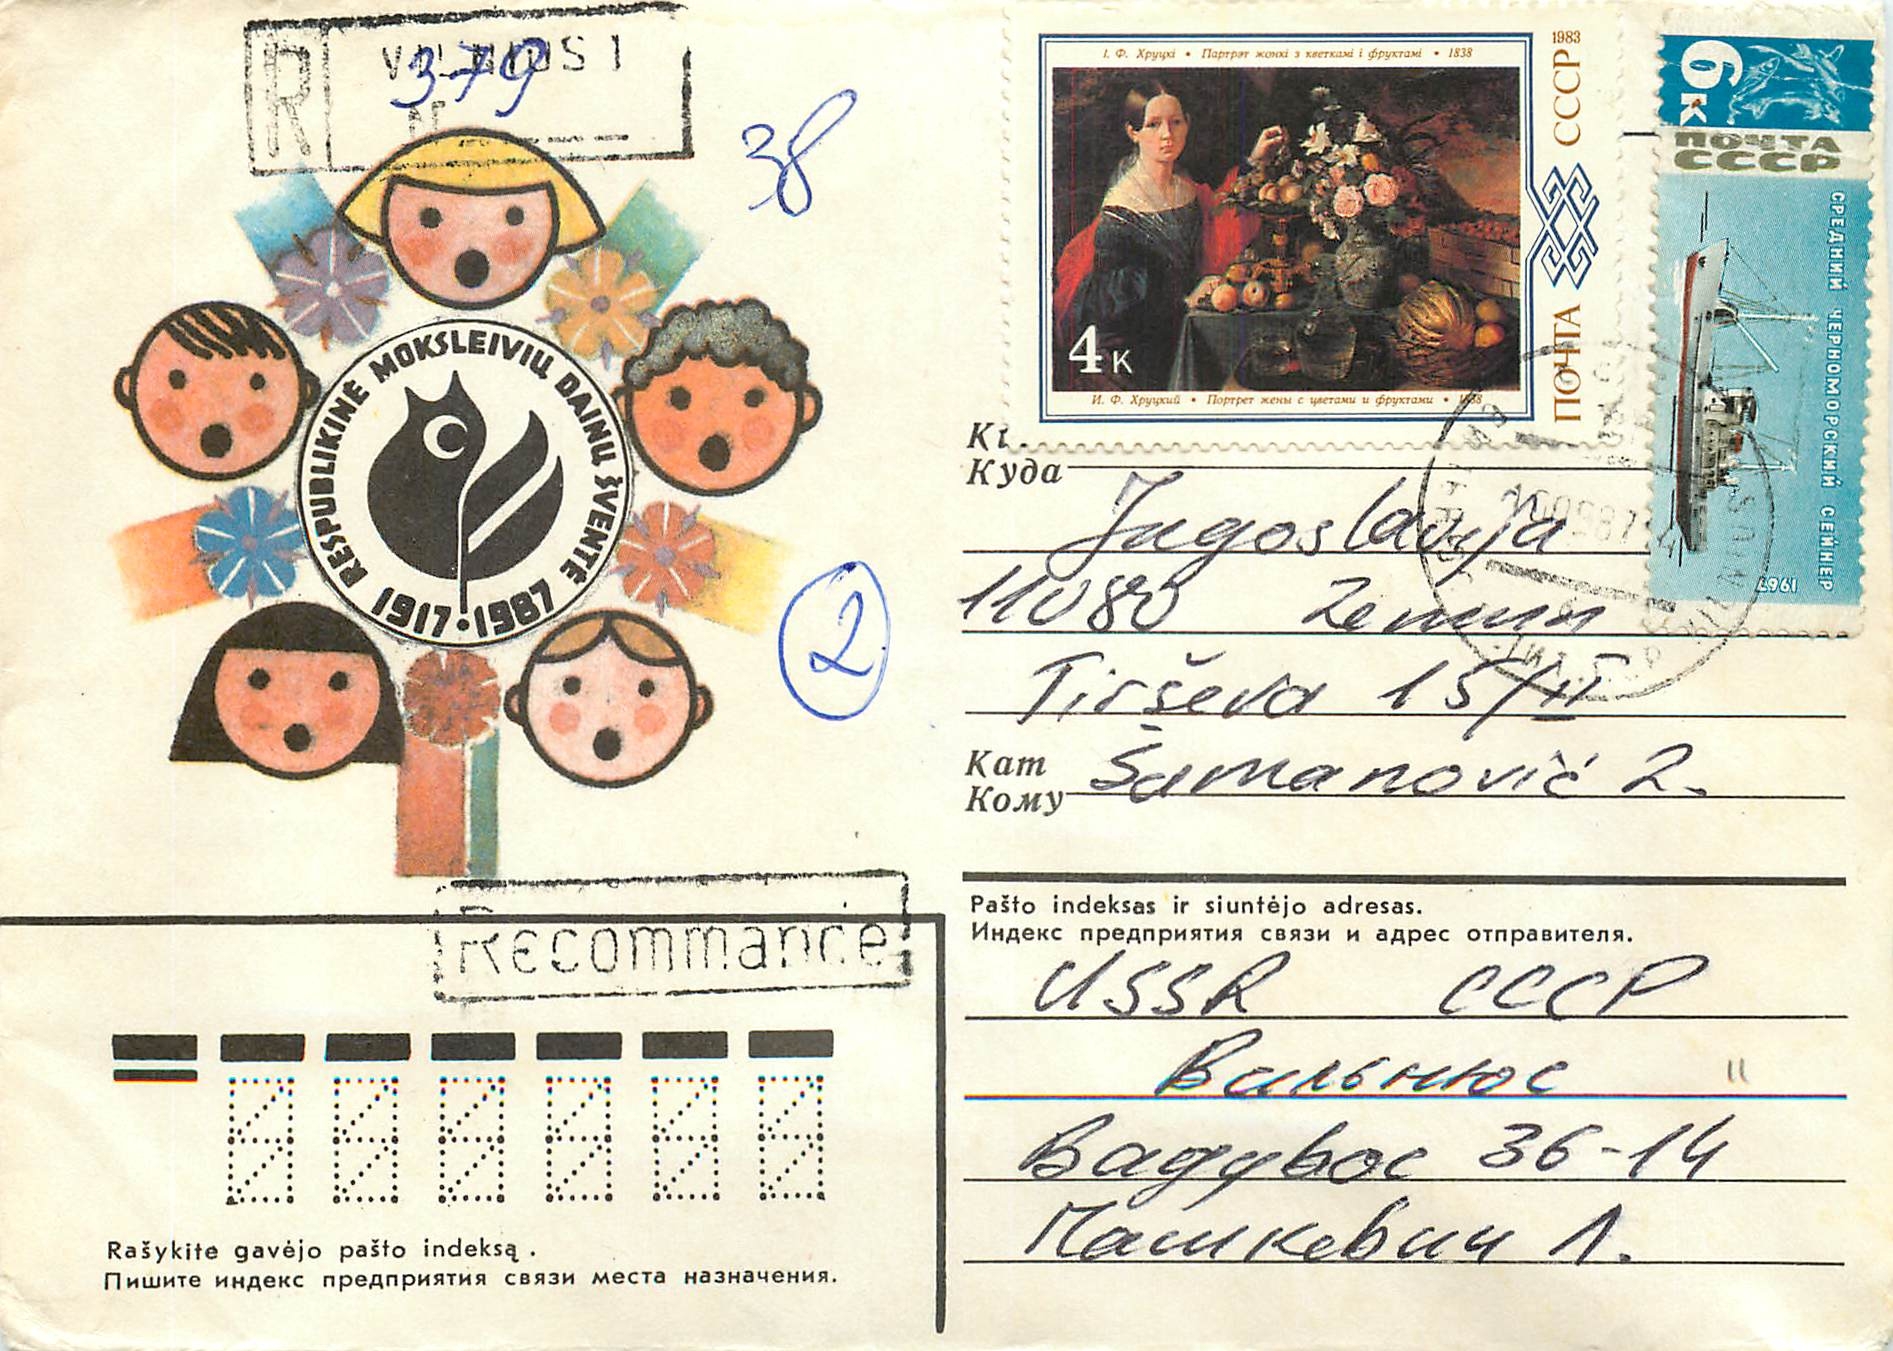 R VILNIUS 1
N 379
38
RESPUBLIKINĖ MOKSLEIVIŲ DAINŲ ŠVENTĖ
1917·1987
2
І. Ф. Хруцкі • Партрэт жонкі з кветкамі і фруктамі • 1838
4 к
И. Ф. Хруцкий • Портрет жены с цветами и фруктами • 1838
ПОЧТА СССР 1983
6 к
ПОЧТА
СССР
СРЕДНИЙ ЧЕРНОМОРСКИЙ СЕЙНЕР
1967
VILNIUS
Куда
Jugoslavija
11080 Zemun
Tirševa 15/II
Kam
Кому
Šamanović Z.
Recommandé
Pašto indeksas ir siuntėjo adresas.
Индекс предприятия связи и адрес отправителя.
USSR СССР
Вильнюс
Вадувос 36-14
Пашкевич Л.
Rašykite gavėjo pašto indeksą.
Пишите индекс предприятия связи места назначения.